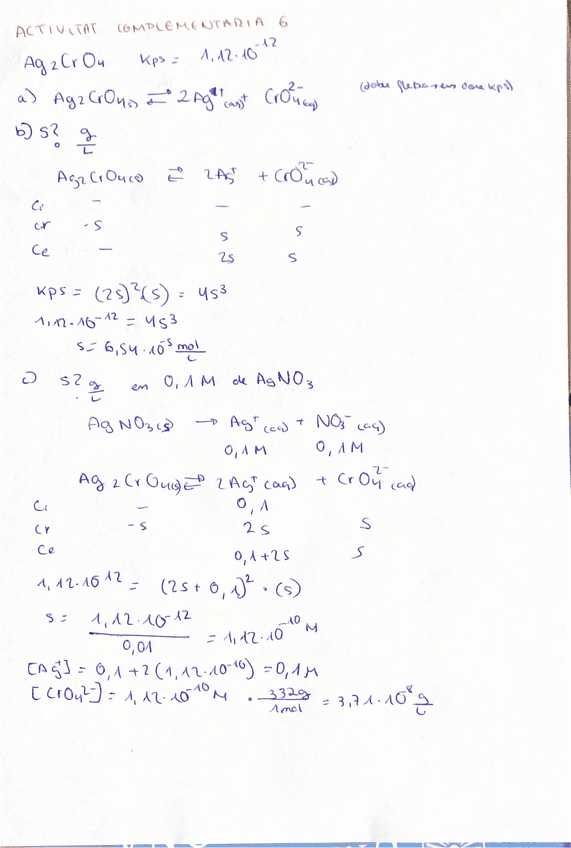 ACTIVITAT COMPLEMENTARIA 6
Ag2CrO4 Kps = 1,12·10^-12
a) Ag2CrO4(s) ⇌ 2Ag+(aq) + CrO4^2-(aq)
b) s? g/L
Ag2CrO4(s) ⇌ 2Ag+ + CrO4^2-(aq)
Ci - - -
Cr -s s s
Ce - 2s s
Kps = (2s)^2(s) = 4s^3
1,12·10^-12 = 4s^3
s = 6,54·10^-5 mol/L
c) s? g/L en 0,1 M de AgNO3
AgNO3(s) → Ag+(aq) + NO3^-(aq)
0,1M 0,1M
Ag2CrO4(s) ⇌ 2Ag+(aq) + CrO4^2-(aq)
Ci - 0,1
Cr -s 2s s
Ce 0,1+2s s
1,12·10^-12 = (2s+0,1)^2 · (s)
s = 1,12·10^-12 / 0,01 = 1,12·10^-10 M
[Ag+] = 0,1+2(1,12·10^-10) = 0,1M
[CrO4^2-] = 1,12·10^-10 M · 332g/1mol = 3,71·10^-8 g/L